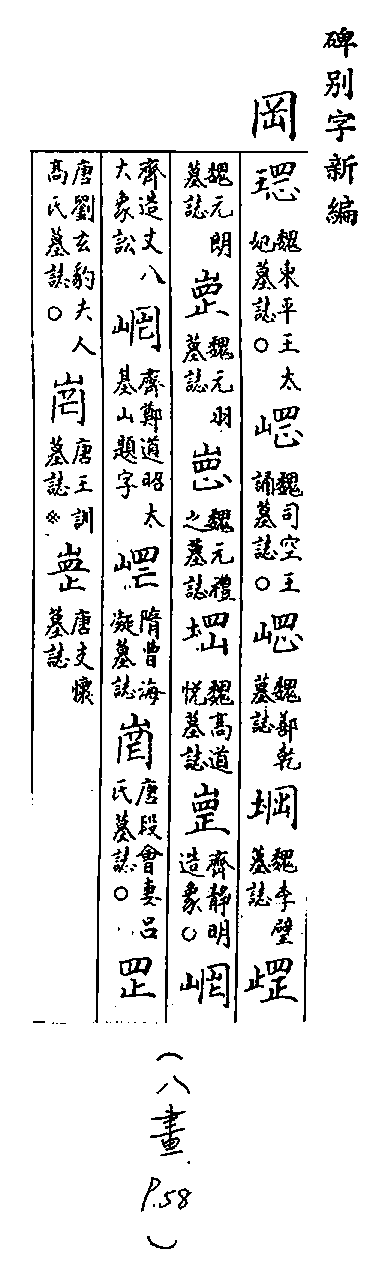 碑別字新編
岡
魏東平王太妃墓誌○ 魏司空王誦墓誌○ 魏鄭乾墓誌 堈 魏李璧墓誌
魏元朗墓誌 魏元羽墓誌 魏元禮之墓誌 魏高道悅墓誌 齊靜明造象○
齊造丈八大象訟 齊鄭道昭太基山題字 隋曹海凝墓誌 唐段會妻呂氏墓誌○ 罡
唐劉玄豹夫人高氏墓誌○ 唐王訓墓誌※ 唐吏懷墓誌
(八畫 P.58)